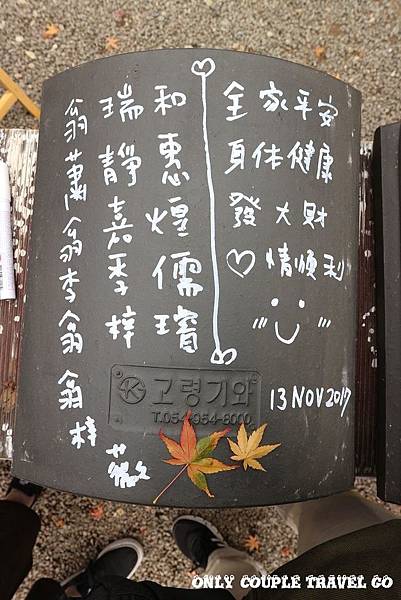 翁瑞和
蕭靜惠
翁嘉煌
李季儒
翁梓
翁梓薇
全家平安
身体健康
發大財
♡情順利
고령기와
T.054-954-8000
13 NOV 2017
ONLY COUPLE TRAVEL CO